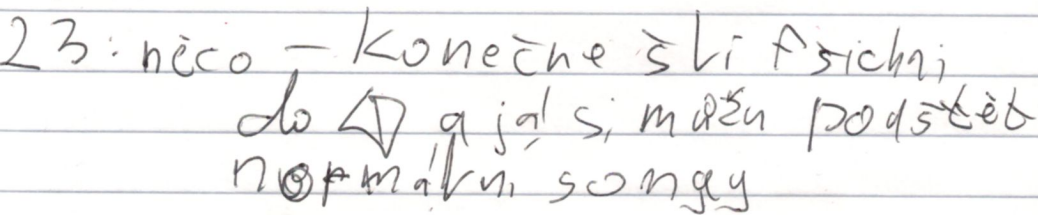 23: něco – Konečně šli fšichni
do a já si můžu podštět
normální songy